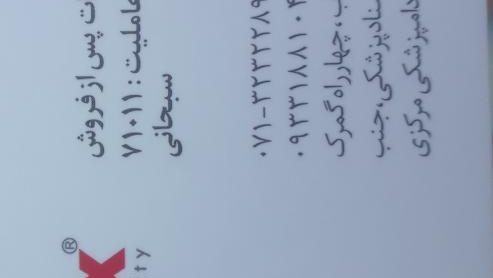 پس از فروش
عاملیت : ۷۱۰۱۱
سبحانی
۰۷۱-۳۲۳۲۲۸۹
۰۹۳۳۱۸۸۱۰۴
چهارراه گمرک
سنادپزشکی،جنب
دامپزشکی مرکزی
X®
ty